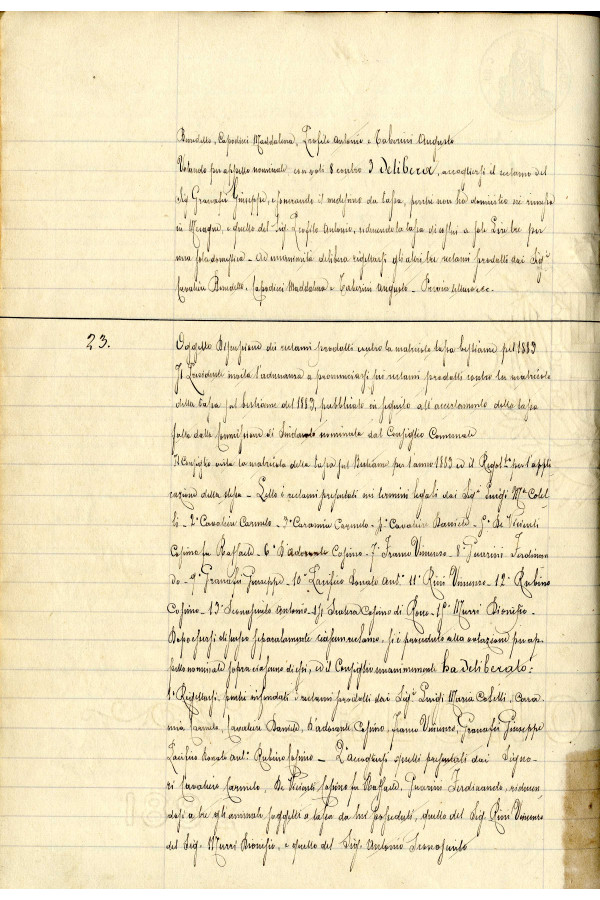 Benedetto, Capodieci Maddalena, Profilo Antonio e Taberini Augusto
Votando per appello nominale, con voti 8 contro 3 delibera, accogliersi il reclamo del
Sig Granafei Giuseppe, esonerando il medesimo da tassa, perchè non ha domicilio nè rimessa
in Mesagne, e quello del Sig. Profilo Antonio, riducendo la tassa di costui a sole Lire tre per
una sola domestica - Ad unanimità delibera rigettarsi gli altri tre reclami prodotti dai Sigri
Cavaliere Benedetto, Capodieci Maddalena e Taberini Augusto -
23.
Oggetto Discussione dei reclami prodotti contro la matricola tassa bestiame pel 1883
Il Presidente invita l'adunanza a pronunciarsi sui reclami prodotti contro la matricola
della tassa sul bestiame del 1883, pubblicata in seguito all'accertamento della tassa
fatto dalla Commissione di Sindacato nominata dal Consiglio Comunale
Il Consiglio vista la matricola della tassa sul Bestiame per l'anno 1883 ed il Regolto per l'appli
cazione della stessa - Letto i reclami presentati nei termini legali dai Sigri Luigi Ma Colel
li - 2o Cavaliere Carmelo - 3o Caramia Carmelo - 4o Cavaliere Daniele - 5o De Vicenti
Cosimo fu Raffaele - 6o D'Adorante Cosimo - 7o Franco Vincenzo - 8o Guarini Ferdinan
do - 9o Granafei Giuseppe - 10o Lacifico Donato Anto 11o Rini Vincenzo - 12o Rubino
Cosimo - 13o Scionofurto Antonio - 14 Scalera Cosimo di Rocco - 15o Murri Dionisio -
Dopo essersi discusso separatamente ciascun reclamo, si è proceduto alla votazione per ap
pello nominale sopra ciascuno di essi, ed il Consiglio unanimemente ha deliberato:
1o Rigettarsi perchè infondati i reclami prodotti dai Sigri Luigi Maria Colelli, Cara
mia Carmelo, Cavaliere Daniele, D'Adorante Cosimo, Franco Vincenzo, Granafei Giuseppe
Lacifico Donato Anto Rubino Cosimo - 2o Accogliersi quelli presentati dai Signo-
ri Cavaliere Carmelo, De Vicenti Cosimo fu Raffaele, Guarini Ferdinando, riducen
dosi a tre gli animali soggetti a tassa da lui posseduti, quello del Sig. Rini Vincenzo
del Sig. Murri Dionisio, e quello del Sig. Antonio Scionofurto